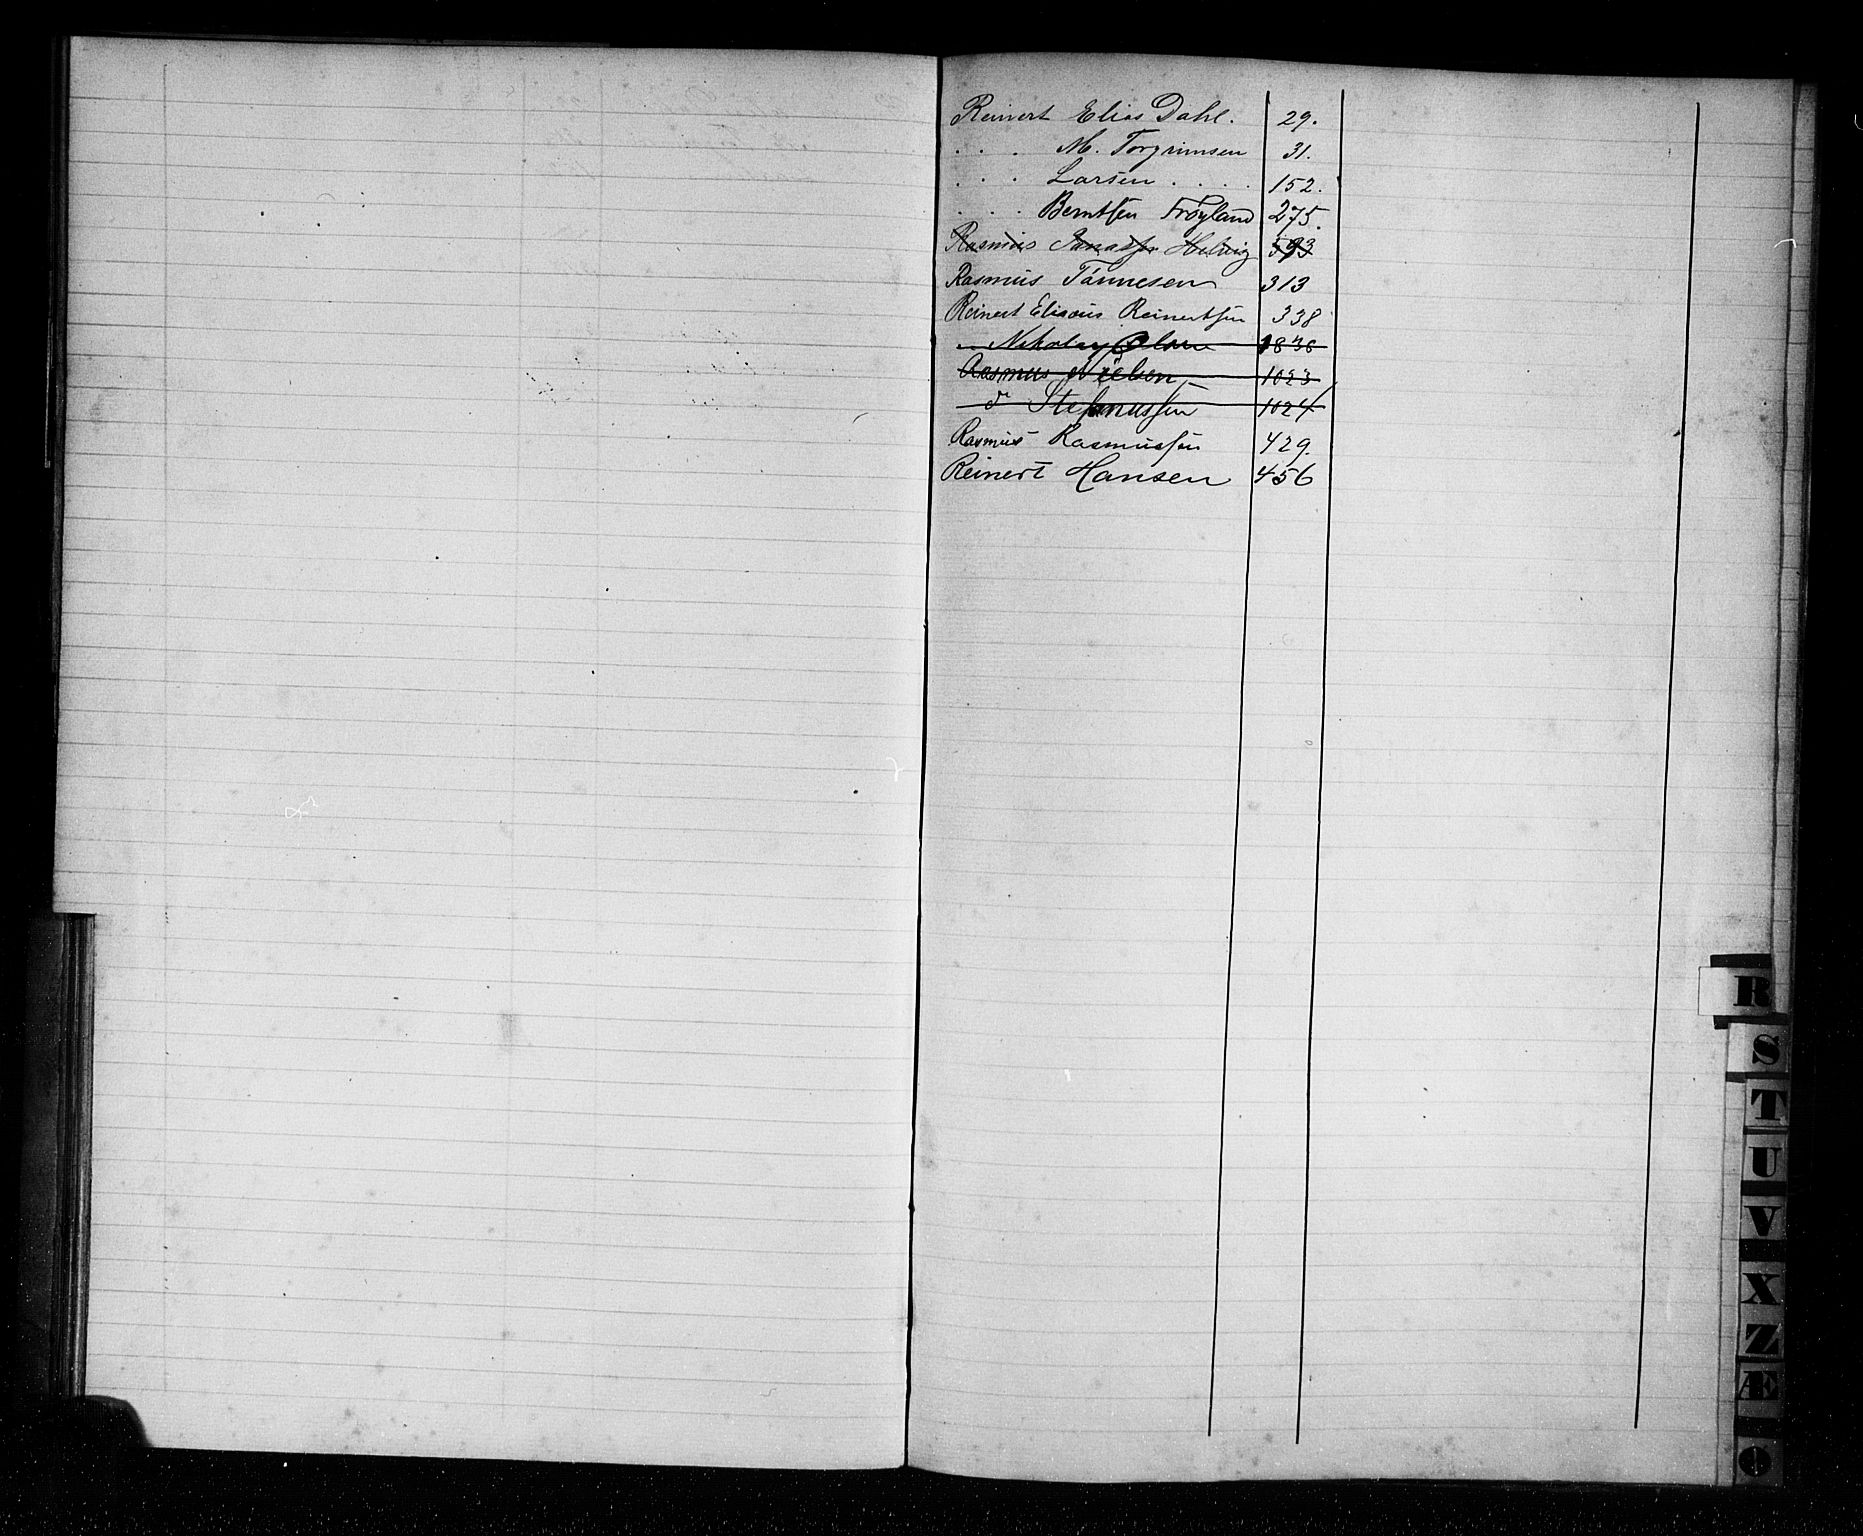 Reinert Elias Dahl. 29.
. . . M. Torgrimsen 31.
. . . Larsen . . . . 152.
. . . Berntsen Frøyland 275.
Rasmus Helvig 593
Rasmus Tønnesen 313
Reinert Elisæus Reinertsen 338
Nikolay Olsen 1836
Rasmus Nielsen 1023
do Stefanussen 1024
Rasmus Rasmussen 429.
Reinert Hansen 456
R
S
T
U
V
X
Z
Æ
Ø